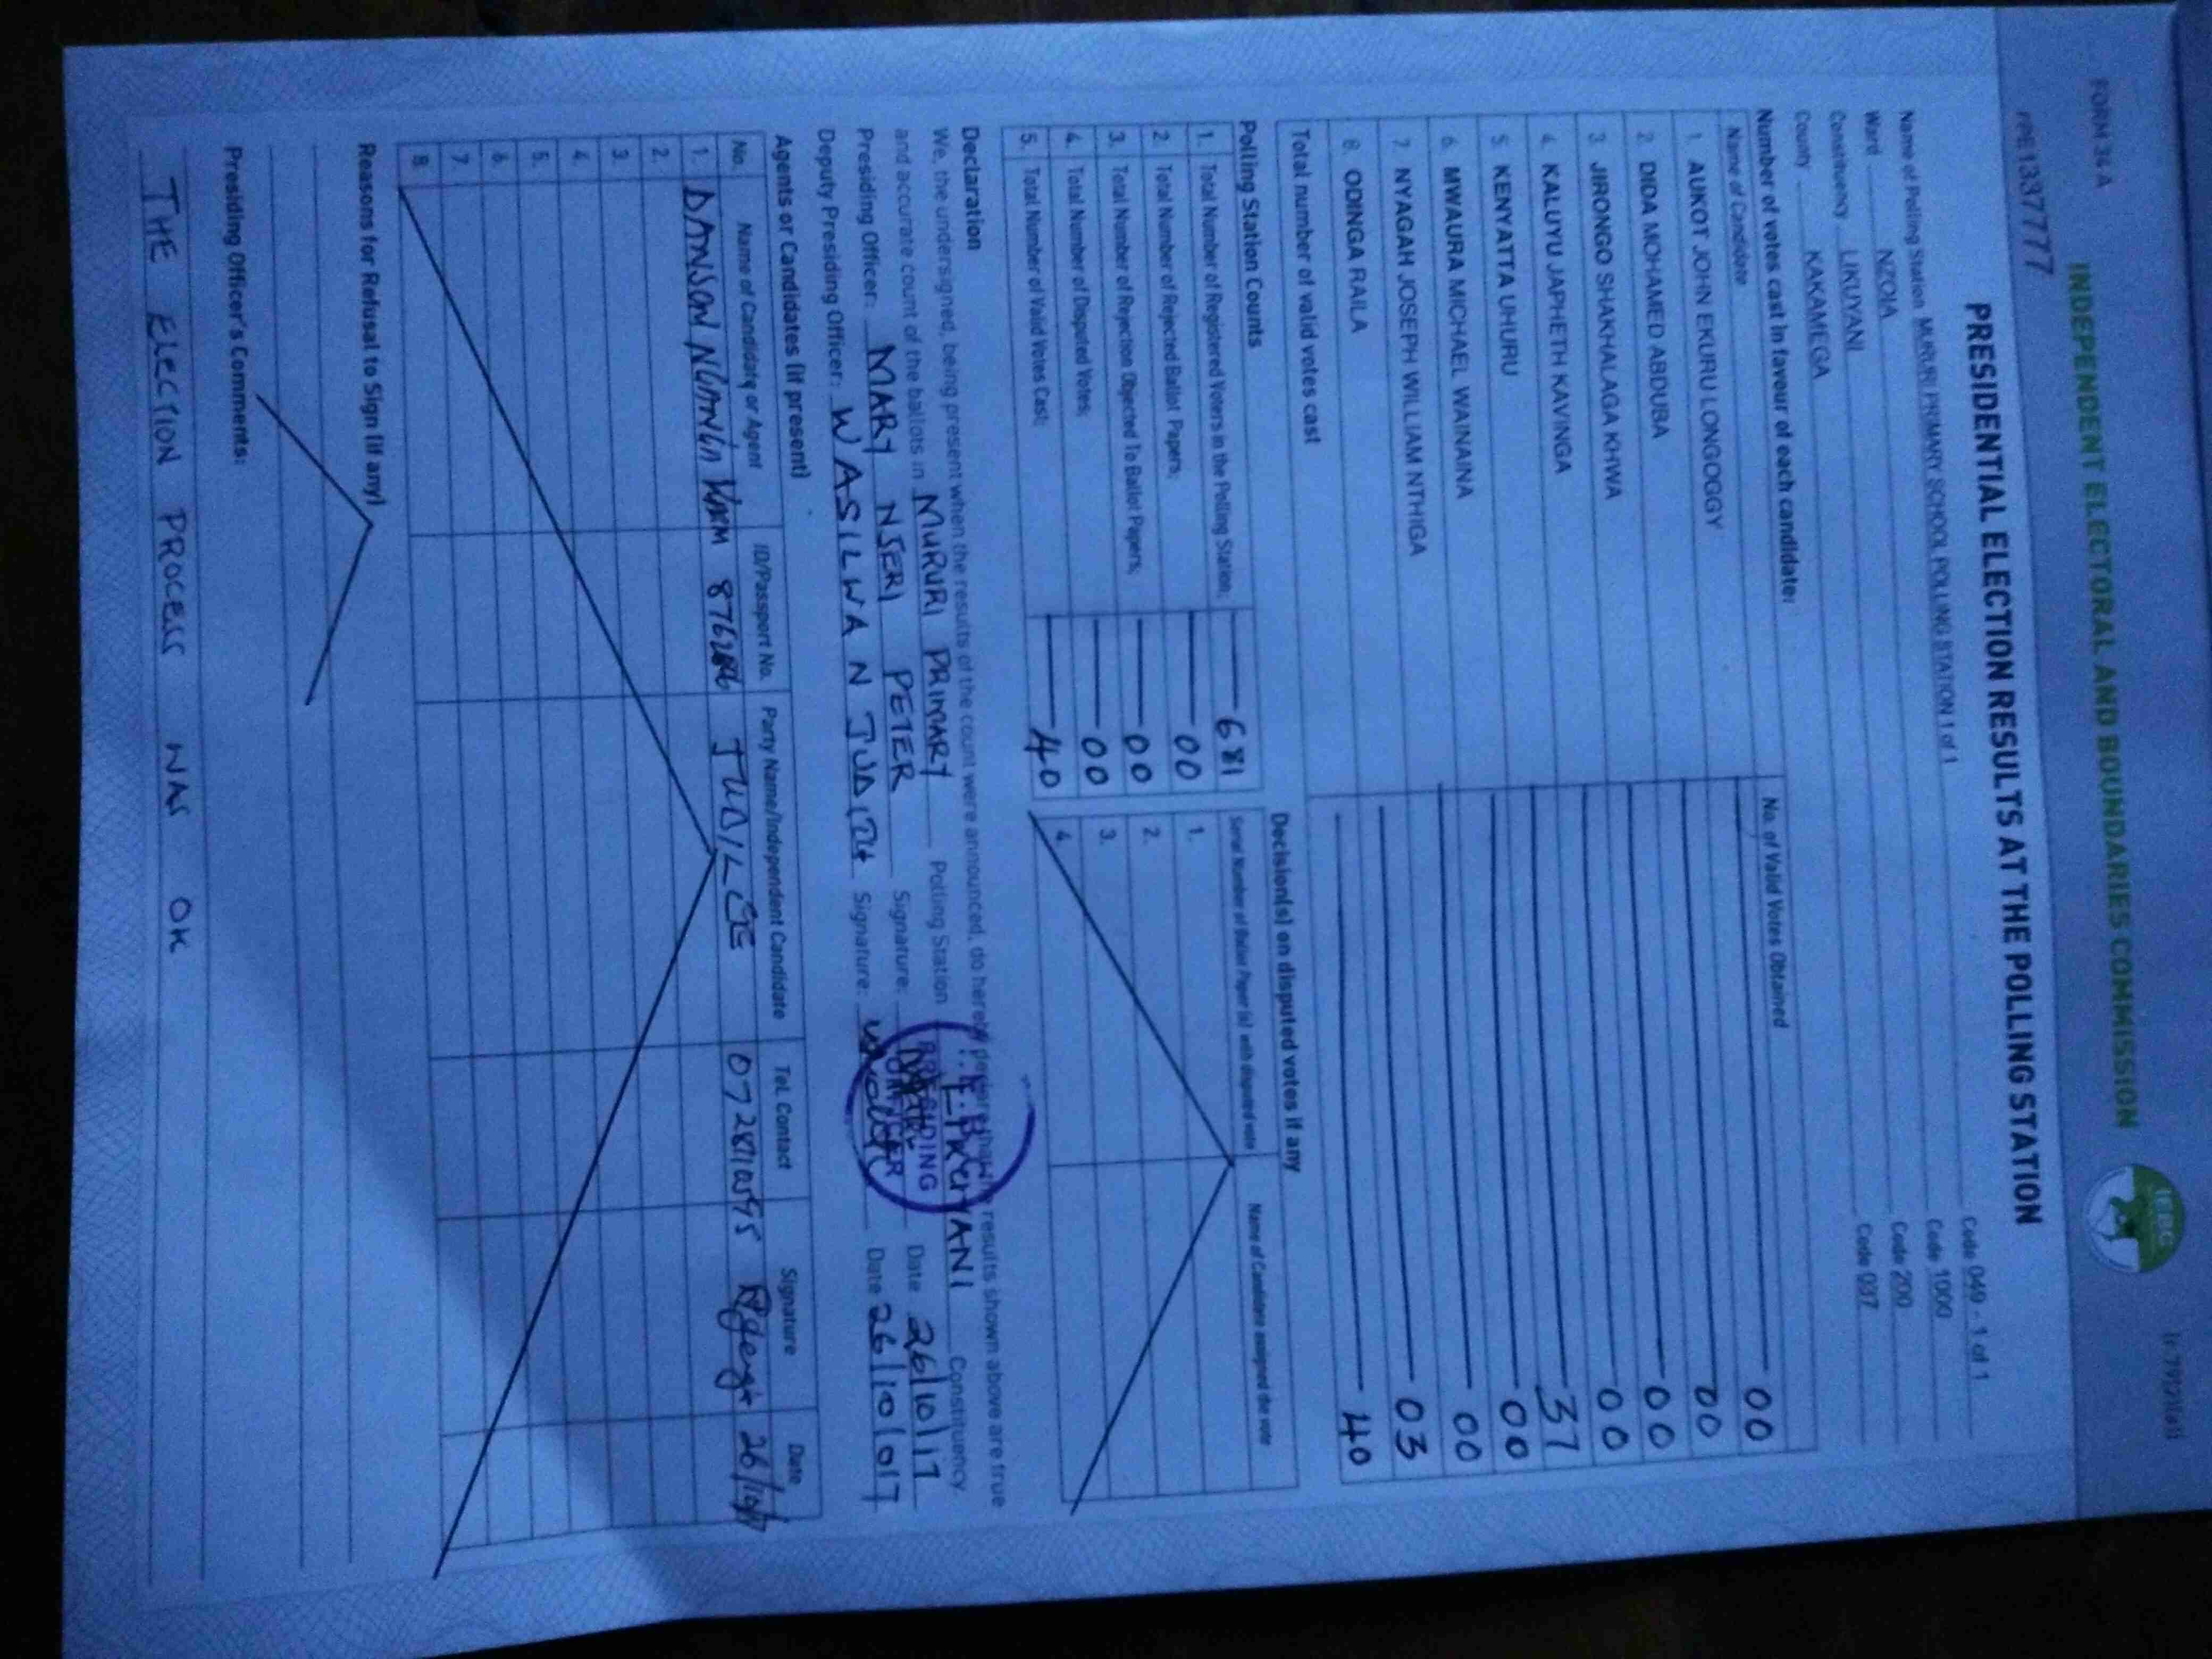 FORM 34 A INDEPENDENT ELECTORAL AND BOUNDARIES COMMISSION IEBC
PRESIDENTIAL ELECTION RESULTS AT THE POLLING STATION
Name of Polling Station MURURI PRIMARY SCHOOL POLLING STATION 1 of 1 Code 049 - 1 of 1
Ward NZOIA Code 1000
Constituency LIKUYANI Code 200
County KAKAMEGA Code 037
Number of votes cast in favour of each candidate:
Name of Candidate No. of Valid Votes Obtained
1. AUKOT JOHN EKURU LONGOGGY 00
2. DIDA MOHAMED ABDUBA 00
3. JIRONGO SHAKHALAGA KHWA 00
4. KALUYU JAPHETH KAVINGA 00
5. KENYATTA UHURU 37
6. MWAURA MICHAEL WAINAINA 00
7. NYAGAH JOSEPH WILLIAM NTHIGA 00
8. ODINGA RAILA 03
Total number of valid votes cast 40
Polling Station Counts
1. Total Number of Registered Voters in the Polling Station; 681
2. Total Number of Rejected Ballot Papers; 00
3. Total Number of Rejection Objected To Ballot Papers; 00
4. Total Number of Disputed Votes; 00
5. Total Number of Valid Votes Cast; 40
Decision(s) on disputed votes if any
Serial Number of Ballot Paper (s) with disputed vote Name of Candidate assigned the vote
1.
2.
3.
4.
Declaration
We, the undersigned, being present when the results of the count were announced, do hereby declare that the results shown above are true
and accurate count of the ballots in MURURI PRIMARY Polling Station LIKUYANI Constituency
Presiding Officer: MARY NJERI PETER Signature: Date 26/10/17
Deputy Presiding Officer: WASILWA N JUDITH Signature: Date 26/10/017
PRESIDING OFFICER
Agents or Candidates (if present)
No. Name of Candidate or Agent ID/Passport No. Party Name/Independent Candidate Tel. Contact Signature Date
1. DANSON JUBILEE 26/10/17
2.
3.
4.
5.
6.
7.
8.
Reasons for Refusal to Sign (if any)
Presiding Officer's Comments:
THE ELECTION PROCESS WAS OK